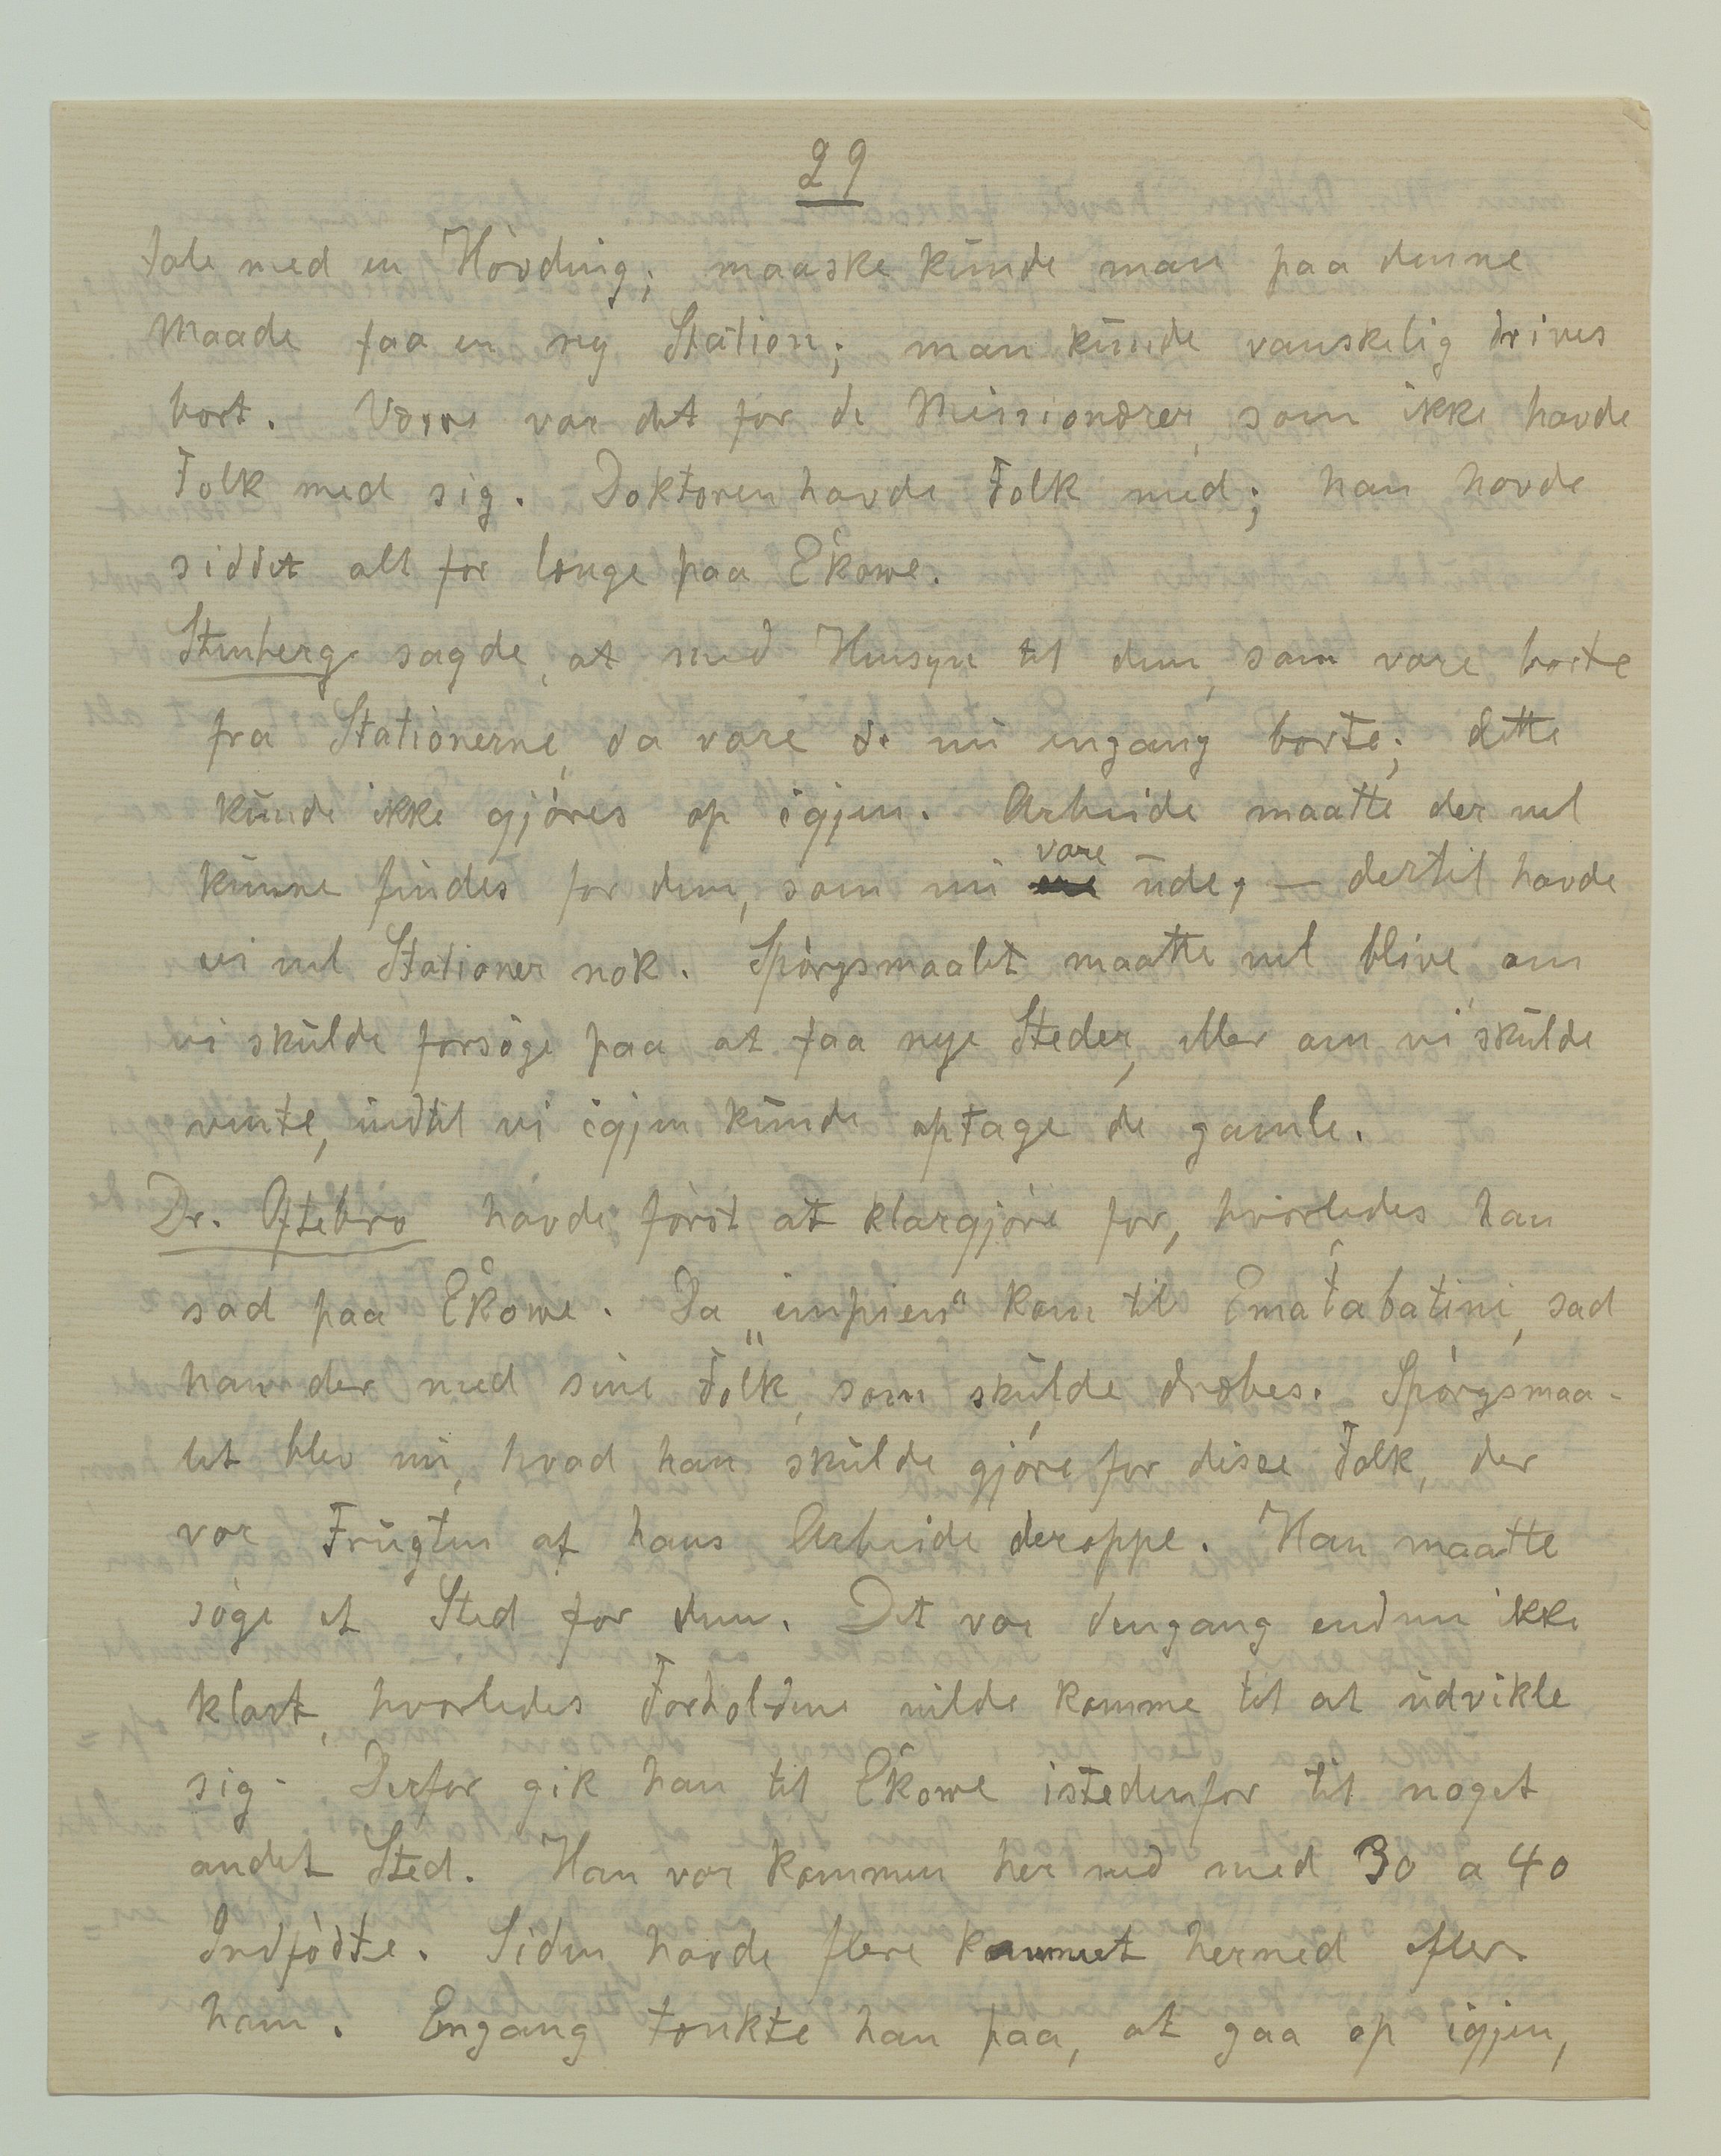 29
tale med en Hövding; maaske kunde man paa denne
Maade faa en ny Station; man kunde vanskelig drives
bort. Værre var det for de Missionærer, som ikke havde
Folk med sig. Doktoren havde Folk med; han havde
siddet alt for længe paa Ekowe.
Stenberg sagde, at med Hensyn til dem, som vare borte
fra Stationerne, da vare de nu engang borte; dette
kunde ikke gjöres op igjen. Arbeide maatte der vel
kunne findes for dem, som nu vare ude; — dertil havde
vi vel Stationer nok. Spörgsmaalet maatte vel blive om
vi skulde forsöge paa at faa nye Steder, eller om vi skulde
vente, indtil vi igjen kunde optage de gamle.
Dr. Oftebro havde först at klargjöre for, hvorledes han
sad paa Ekowe. Da „impien" kom til Ematabatini, sad
han der med sine Folk, som skulde dræbes. Spörgsmaa-
let blev nu, hvad han skulde gjöre for disse Folk, der
var Frugten af hans Arbeide deroppe. Han maatte
söge et Sted for dem. Det var dengang endnu ikke
klart, hvorledes Forholdene vilde komme til at udvikle
sig. Derfor gik han til Ekowe istedenfor til noget
andet Sted. Han var kommen her ned med 30 a 40
Indfödte. Siden havde flere kommet herned efter
ham. Engang tænkte han paa, at gaa op igjen,